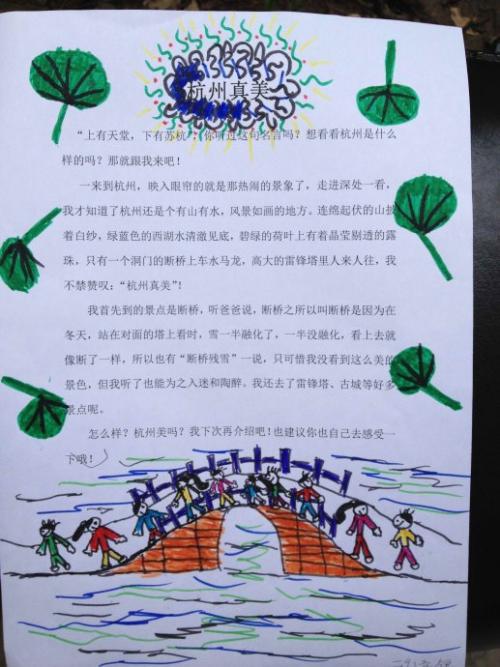 杭州真美
“上有天堂，下有苏杭”，你听过这句名言吗？想看看杭州是什么
样的吗？那就跟我来吧！
一来到杭州，映入眼帘的就是那热闹的景象了，走进深处一看，
我才知道了杭州还是个有山有水，风景如画的地方。连绵起伏的山披
着白纱，绿蓝色的西湖水清澈见底，碧绿的荷叶上有着晶莹剔透的露
珠，只有一个洞门的断桥上车水马龙，高大的雷锋塔里人来人往，我
不禁赞叹：“杭州真美”！
我首先到的景点是断桥，听爸爸说，断桥之所以叫断桥是因为在
冬天，站在对面的塔上看时，雪一半融化了，一半没融化，看上去就
像断了一样，所以也有“断桥残雪”一说，只可惜我没看到这么美的
景色，但我听了也能为之入迷和陶醉。我还去了雷锋塔、古城等好多
景点呢。
怎么样？杭州美吗？我下次再介绍吧！也建议你也自己去感受一
下哦！